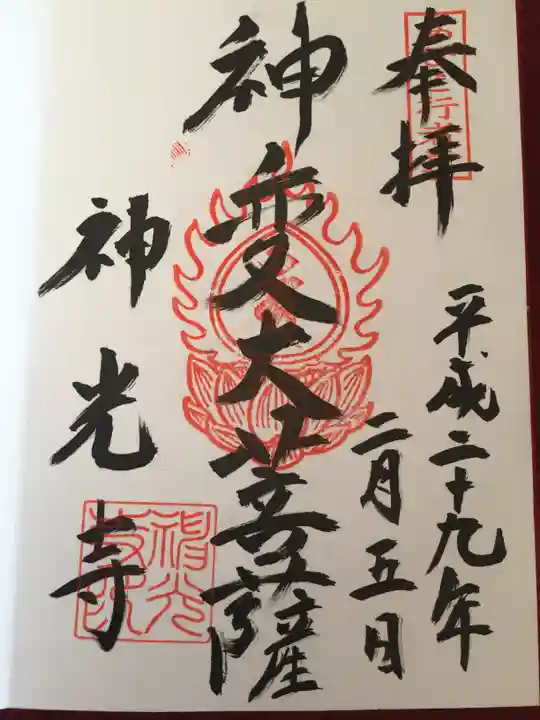 奉拝
平成二十九年
二月五日
神変大菩薩
神光寺